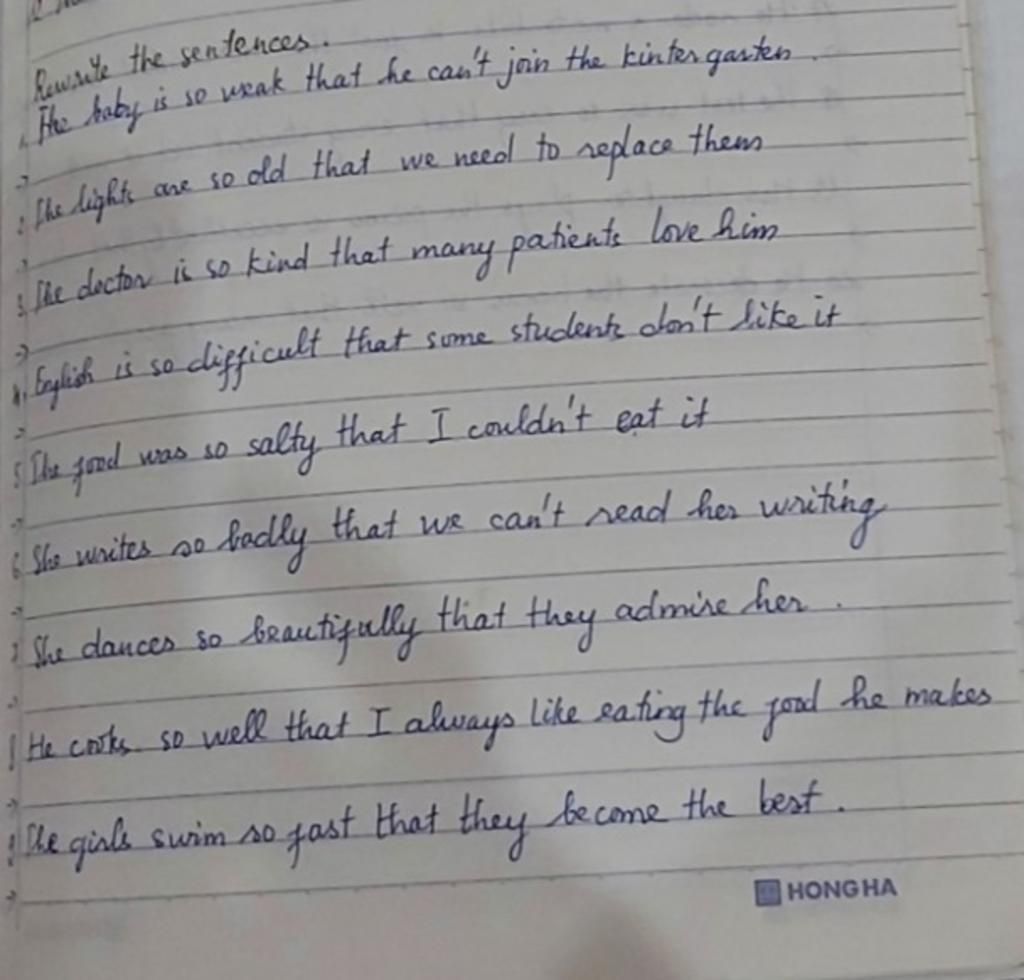 Rewrite the sentences.
1. The baby is so weak that he can't join the kintergarten.
→
2. The lights are so old that we need to replace them
→
3. The doctor is so kind that many patients love him
→
4. English is so difficult that some students don't like it
→
5. The food was so salty that I couldn't eat it
→
6. She writes so badly that we can't read her writing
→
7. She dances so beautifully that they admire her.
→
He cooks so well that I always like eating the food he makes
→
The girls swim so fast that they become the best.
→
HONG HA